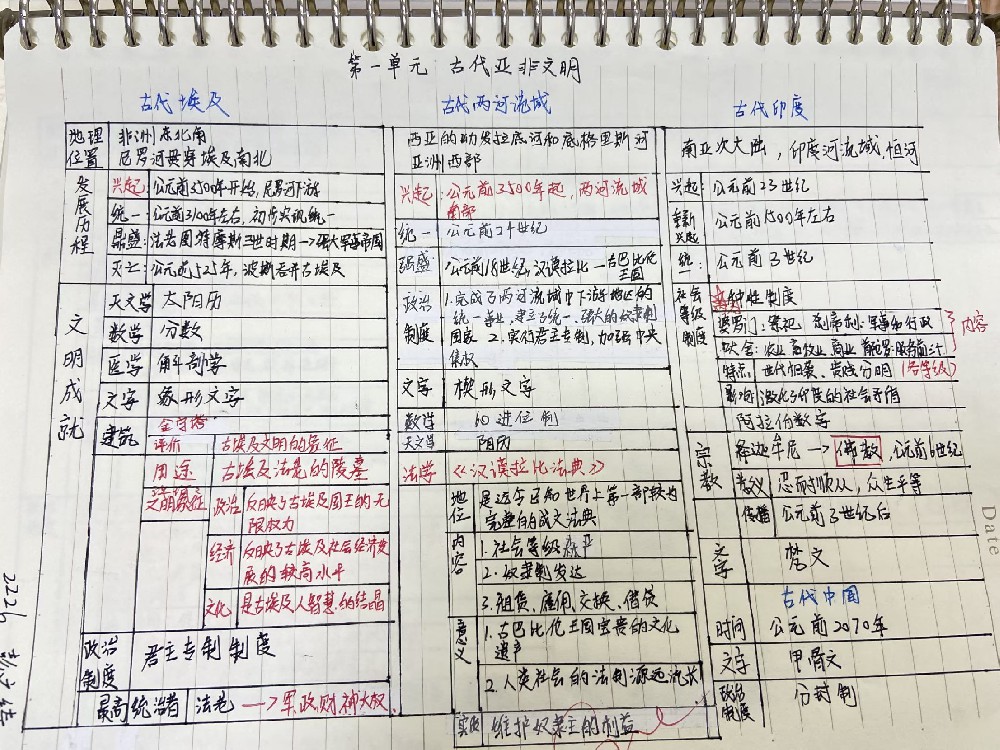 第一单元 古代亚非文明
古代埃及
地理位置 非洲东北角
尼罗河贯穿埃及南北
发展历程
兴起: 公元前3500年开始,尼罗河下游
统一: 公元前3100年左右,初步实现统一
鼎盛: 法老图特摩斯三世时期→强大军事帝国
灭亡: 公元前525年,波斯吞并古埃及
文明成就
天文学 太阳历
数学 分数
医学 解剖学
文字 象形文字
建筑 金字塔
评价 古埃及文明的象征
用途 古埃及法老的陵墓
文明象征 政治 反映了古埃及国王的无
限权力
经济 反映了古埃及社会经济发
展的较高水平
文化 是古埃及人智慧的结晶
政治制度 君主专制制度
最高统治者 法老→军政财神大权
古代两河流域
西亚的幼发拉底河和底格里斯河
亚洲西部
兴起: 公元前3500年起,两河流域
南部
统一 公元前24世纪
强盛 公元前18世纪,汉谟拉比—古巴比伦
王国
政治制度 1.完成了两河流域中下游地区的
统一事业,建立了统一、强大的奴隶制
国家 2.实行君主专制,加强中央
集权
文字 楔形文字
数学 60进位制
天文学 阴历
法学 《汉谟拉比法典》
地位 是迄今已知世界上第一部较为
完整的成文法典
内容 1.社会等级森严
2.奴隶制发达
3.租赁、雇佣、交换、借贷
意义 1.古巴比伦王国宝贵的文化
遗产
2.人类社会的法制源远流长
实质 维护奴隶主的利益
古代印度
南亚次大陆,印度河流域,恒河
兴起: 公元前23世纪
重新兴起 公元前1500年左右
统一: 公元前3世纪
社会等级制度 种姓制度
婆罗门: 祭祀 刹帝利: 军事和行政
吠舍: 农业 畜牧业 商业 首陀罗:
内容
特点: 世代相袭、贵贱分明
影响 激化了印度的社会矛盾
阿拉伯数字
宗教 释迦牟尼→佛教,公元前6世纪
教义 忍耐顺从,众生平等
传播 公元前3世纪后
文字 梵文
古代中国
时间 公元前2070年
文字 甲骨文
政治制度 分封制
Date